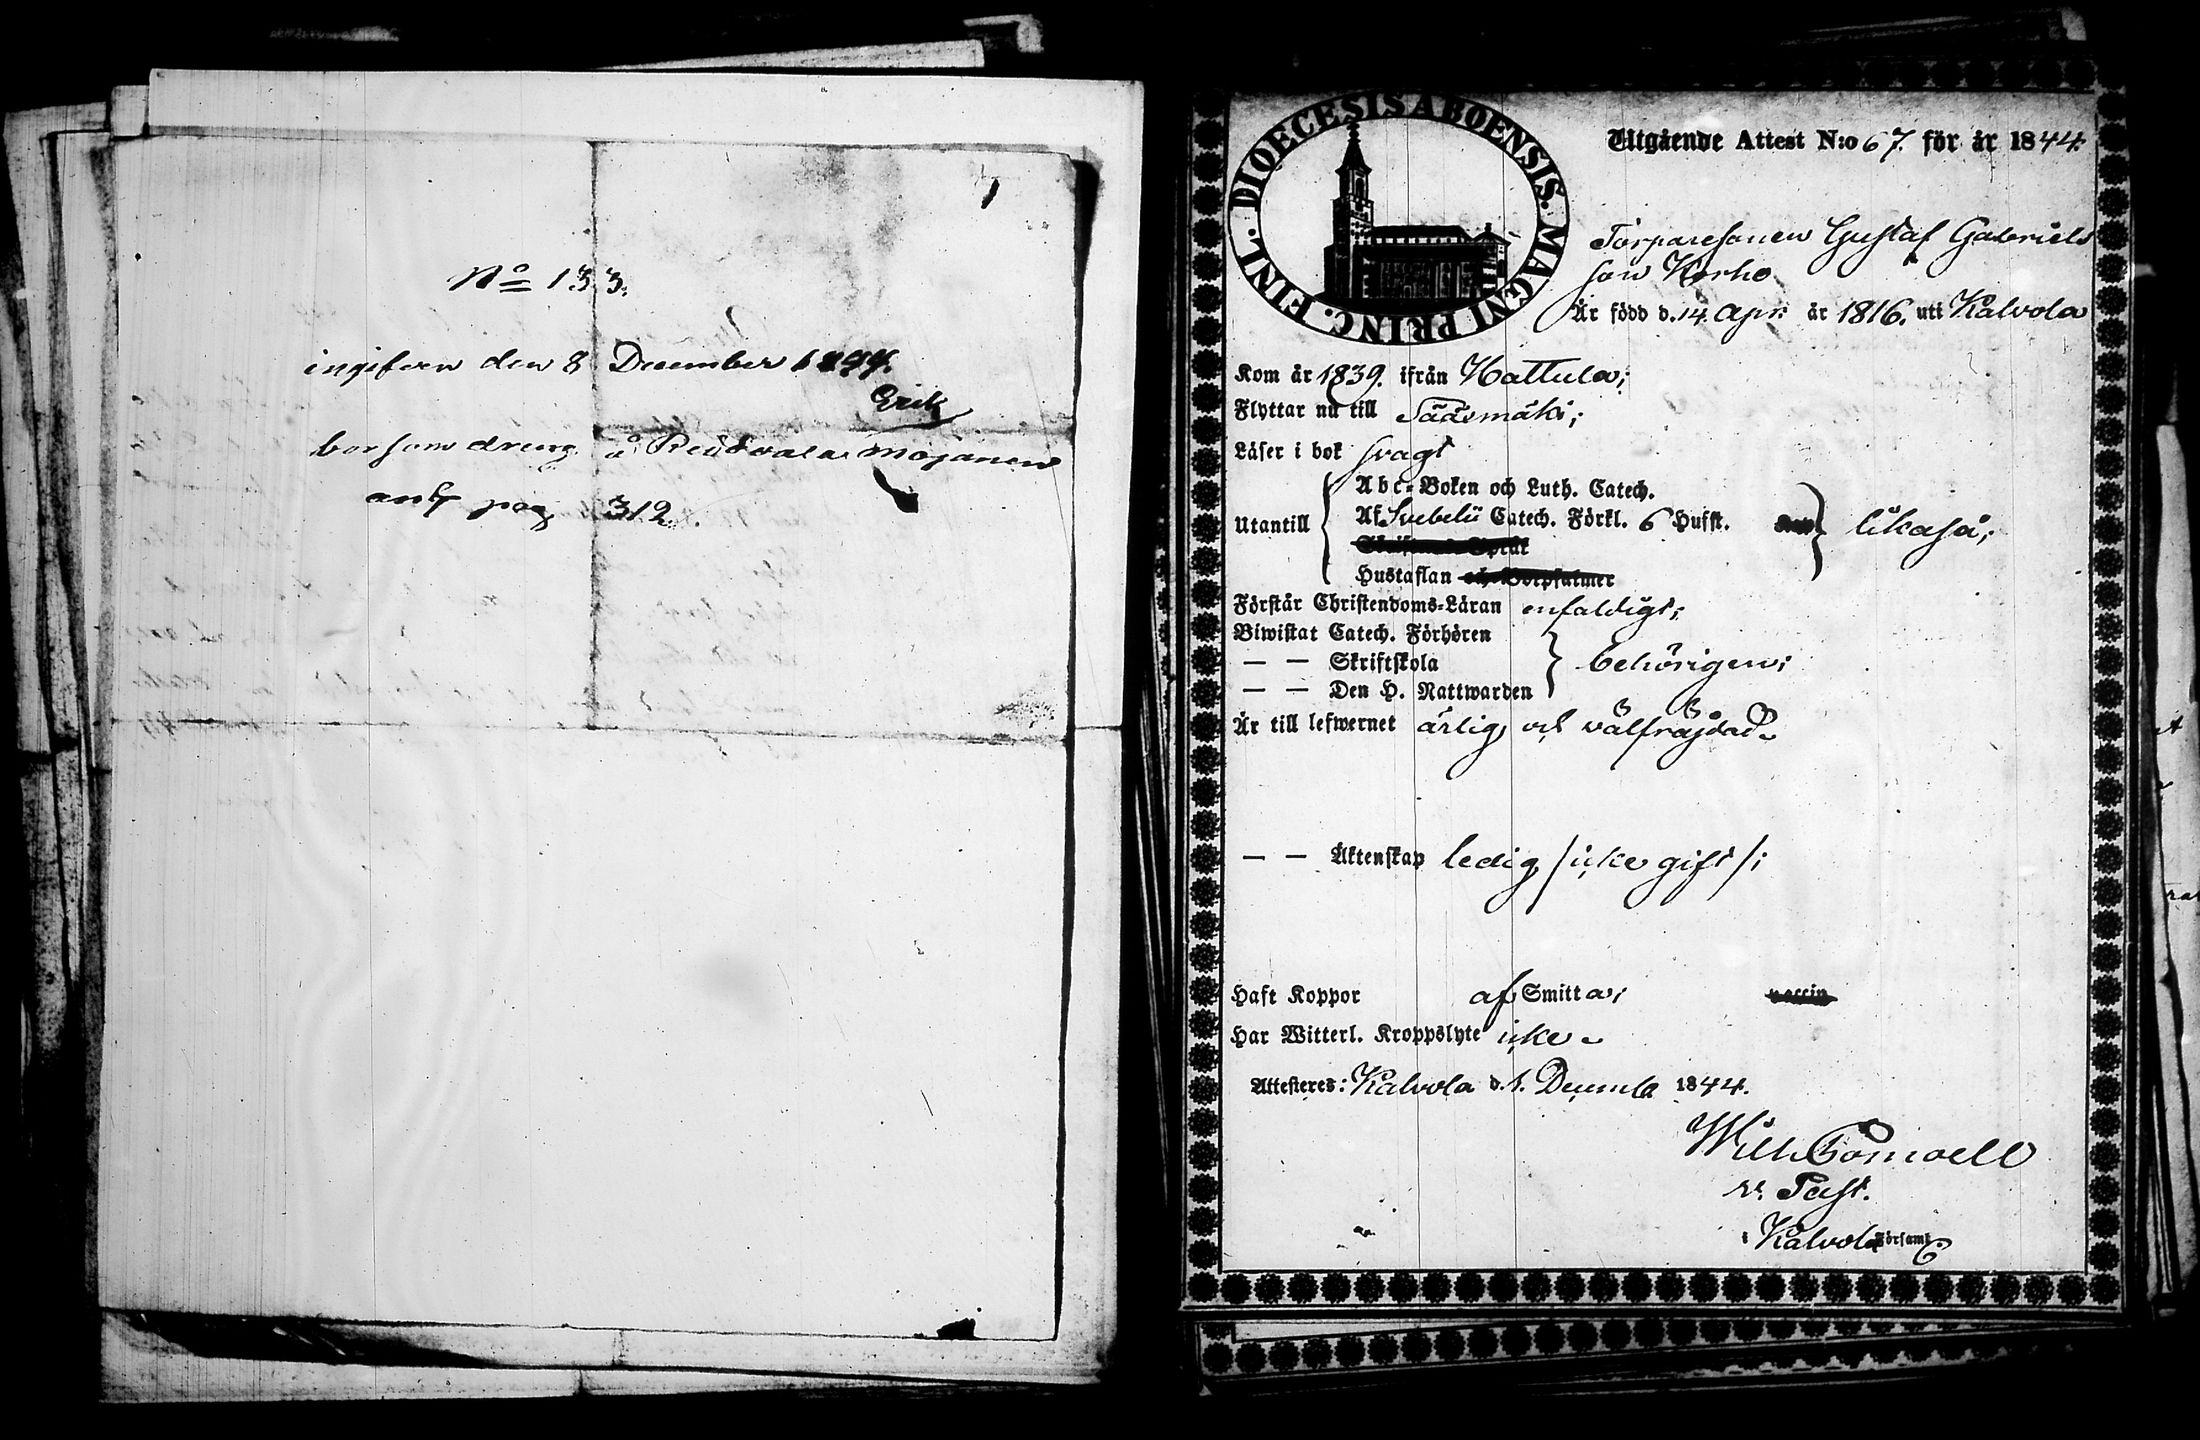 No 133.
ingifven den 8 December 1844.
Erik
bor som dreng å Reudvala Mojanen
ant pag 312.
DIOECESIS ABOENSIS. MAGNI PRINC. FINL.
Utgående Attest N:o 67 för år 1844.
Torparesonen Gustaf Gabriels
son Korho
Är född d. 14. Apr: år 1816. uti Kalvola
Kom år 1839. ifrån Hattula;
Flyttar nu till Sääsmäki;
Läser i bok svagt
Abc-Boken och Luth. Catech.
Utantill Af Svebelii Catech. Förkl. 6 Hufst. likaså;
Hustaflan och Botpsalmer
Förstår Christendoms-Läran enfaldigt;
Biwistat Catech. Förhören
— — Skriftskola behörigen;
— — Den H. Nattwarden
Är till lefwernet ärlig och välfräjdad.
— — Äktenskap ledig /icke gift/;
Haft Koppor af Smitta; vaccin
Har Witterl. Kroppslyte icke.
Attesteres: Kalvola d. 1. Decemb 1844.
Wilh
v. Past.
i Kalvola Församl.